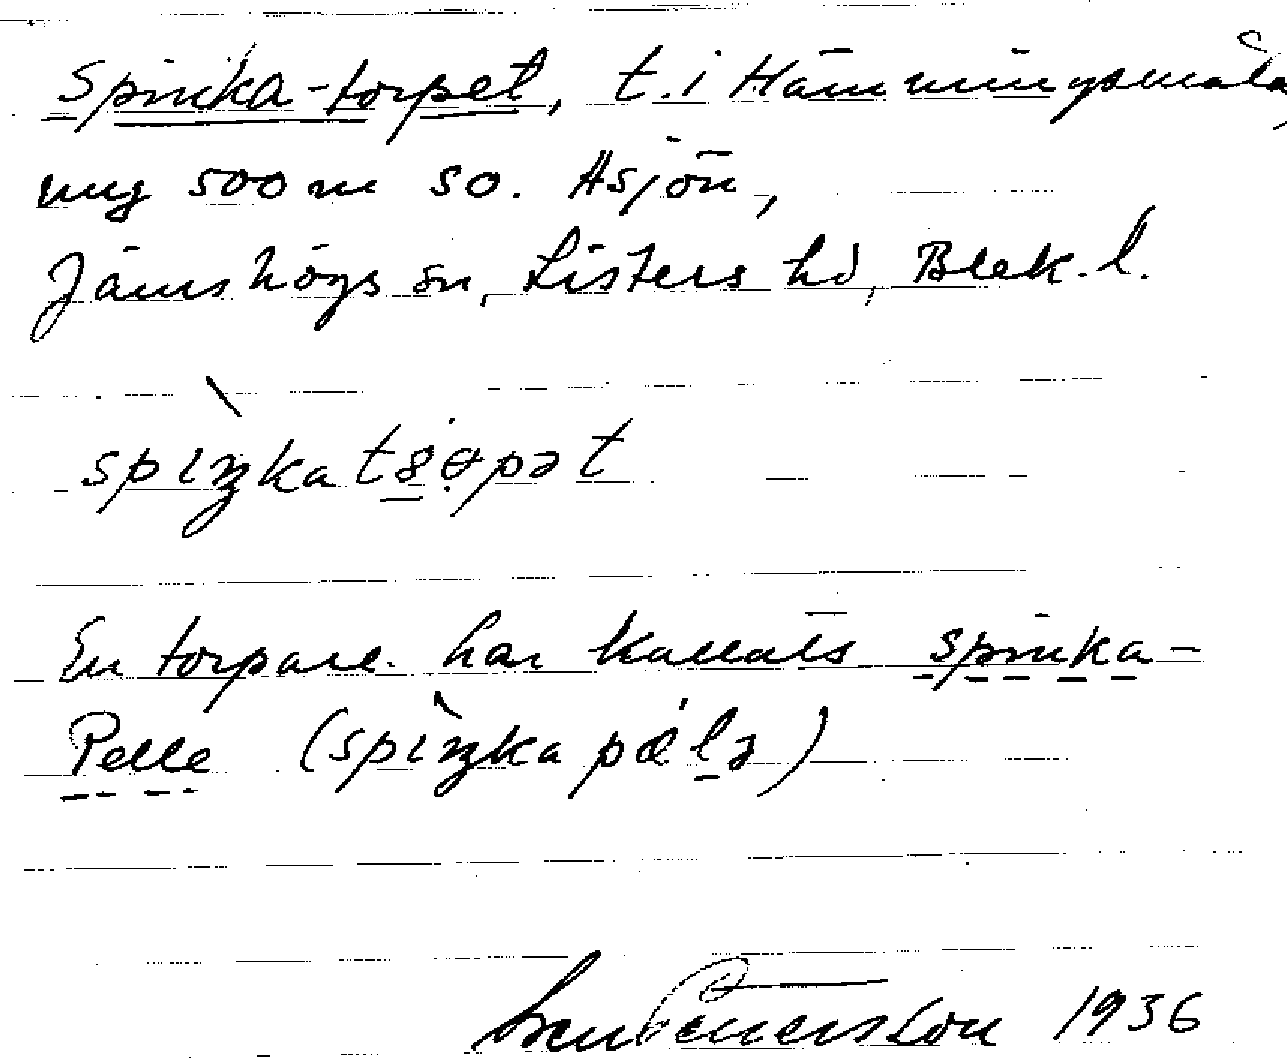 Spinka-torpet, t. i Hämmingsmåla,
ung 500 m SO. Åsjön,
Jämshögs sn, Listers hd, Blek. l.
En torpare har kallats Spinka-
Pelle (
1936